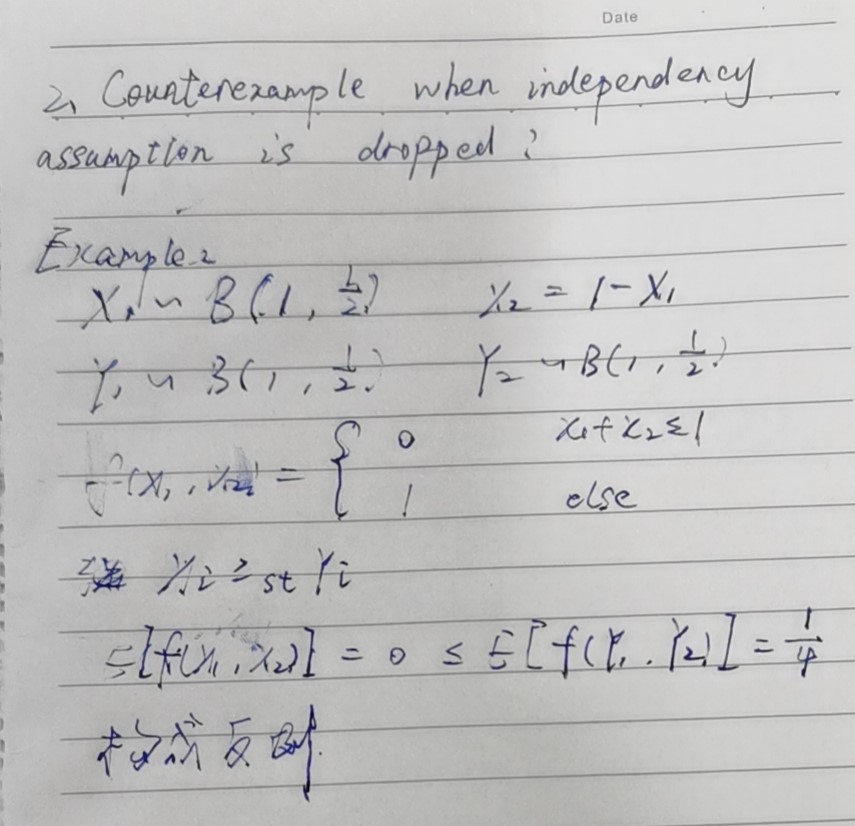 Date
2, Counterexample when independency
assumption is dropped?
Example 2
X₁ ~ B(1, 1/2) X₂ = 1 - X₁
Y₁ ~ B(1, 1/2) Y₂ ~ B(1, 1/2)
f(X₁, X₂) = { 0 x₁+x₂≤1
1 else
Xi ≥st Yi
E[f(X₁, X₂)] = 0 ≤ E[f(Y₁, Y₂)] = 1/4
构成反例.